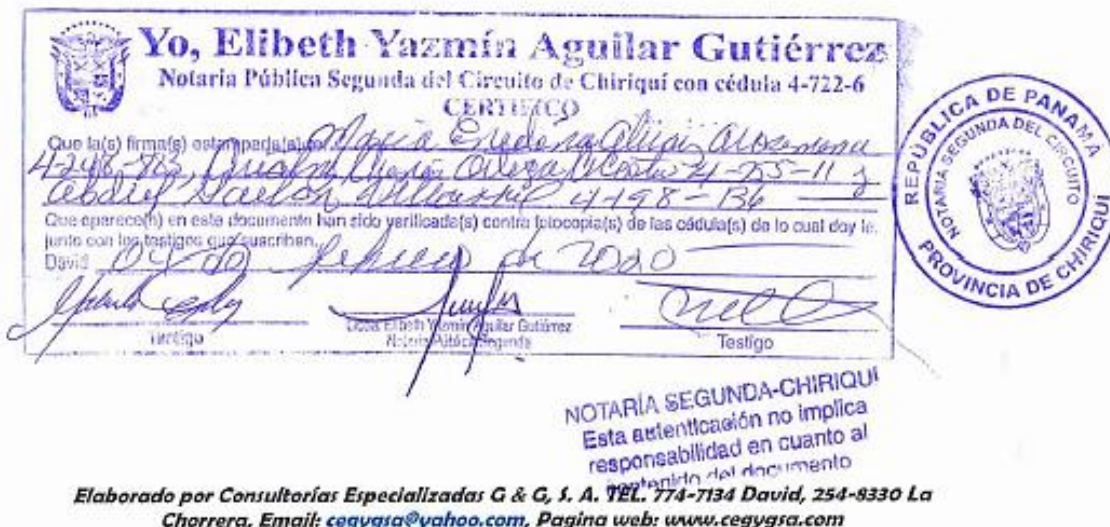 Yo, Elibeth Yazmín Aguilar Gutiérrez
Notaria Pública Segunda del Circuito de Chiriquí con cédula 4-722-6
CERTIFICO
Que la(s) firma(s) estampada(s) de: María
4-248-
4-198-136
Que aparece(n) en este documento han sido verificada(s) contra fotocopia(s) de las cédula(s) de lo cual doy fe,
junto con los testigos que suscriben.
David 04 de febrero de 2020
Testigo
Licda. Elibeth Yazmín Aguilar Gutiérrez
Notaria Pública Segunda
Testigo
REPÚBLICA DE PANAMA
NOTARIA SEGUNDA DEL CIRCUITO
PROVINCIA DE CHIRIQUI
NOTARÍA SEGUNDA-CHIRIQUI
Esta autenticación no implica
responsabilidad en cuanto al
contenido del documento
Elaborado por Consultorías Especializadas G & G, S. A. TEL. 774-7134 David, 254-8330 La
Chorrera, Email: cegygsa@yahoo.com, Pagina web: www.cegygsa.com